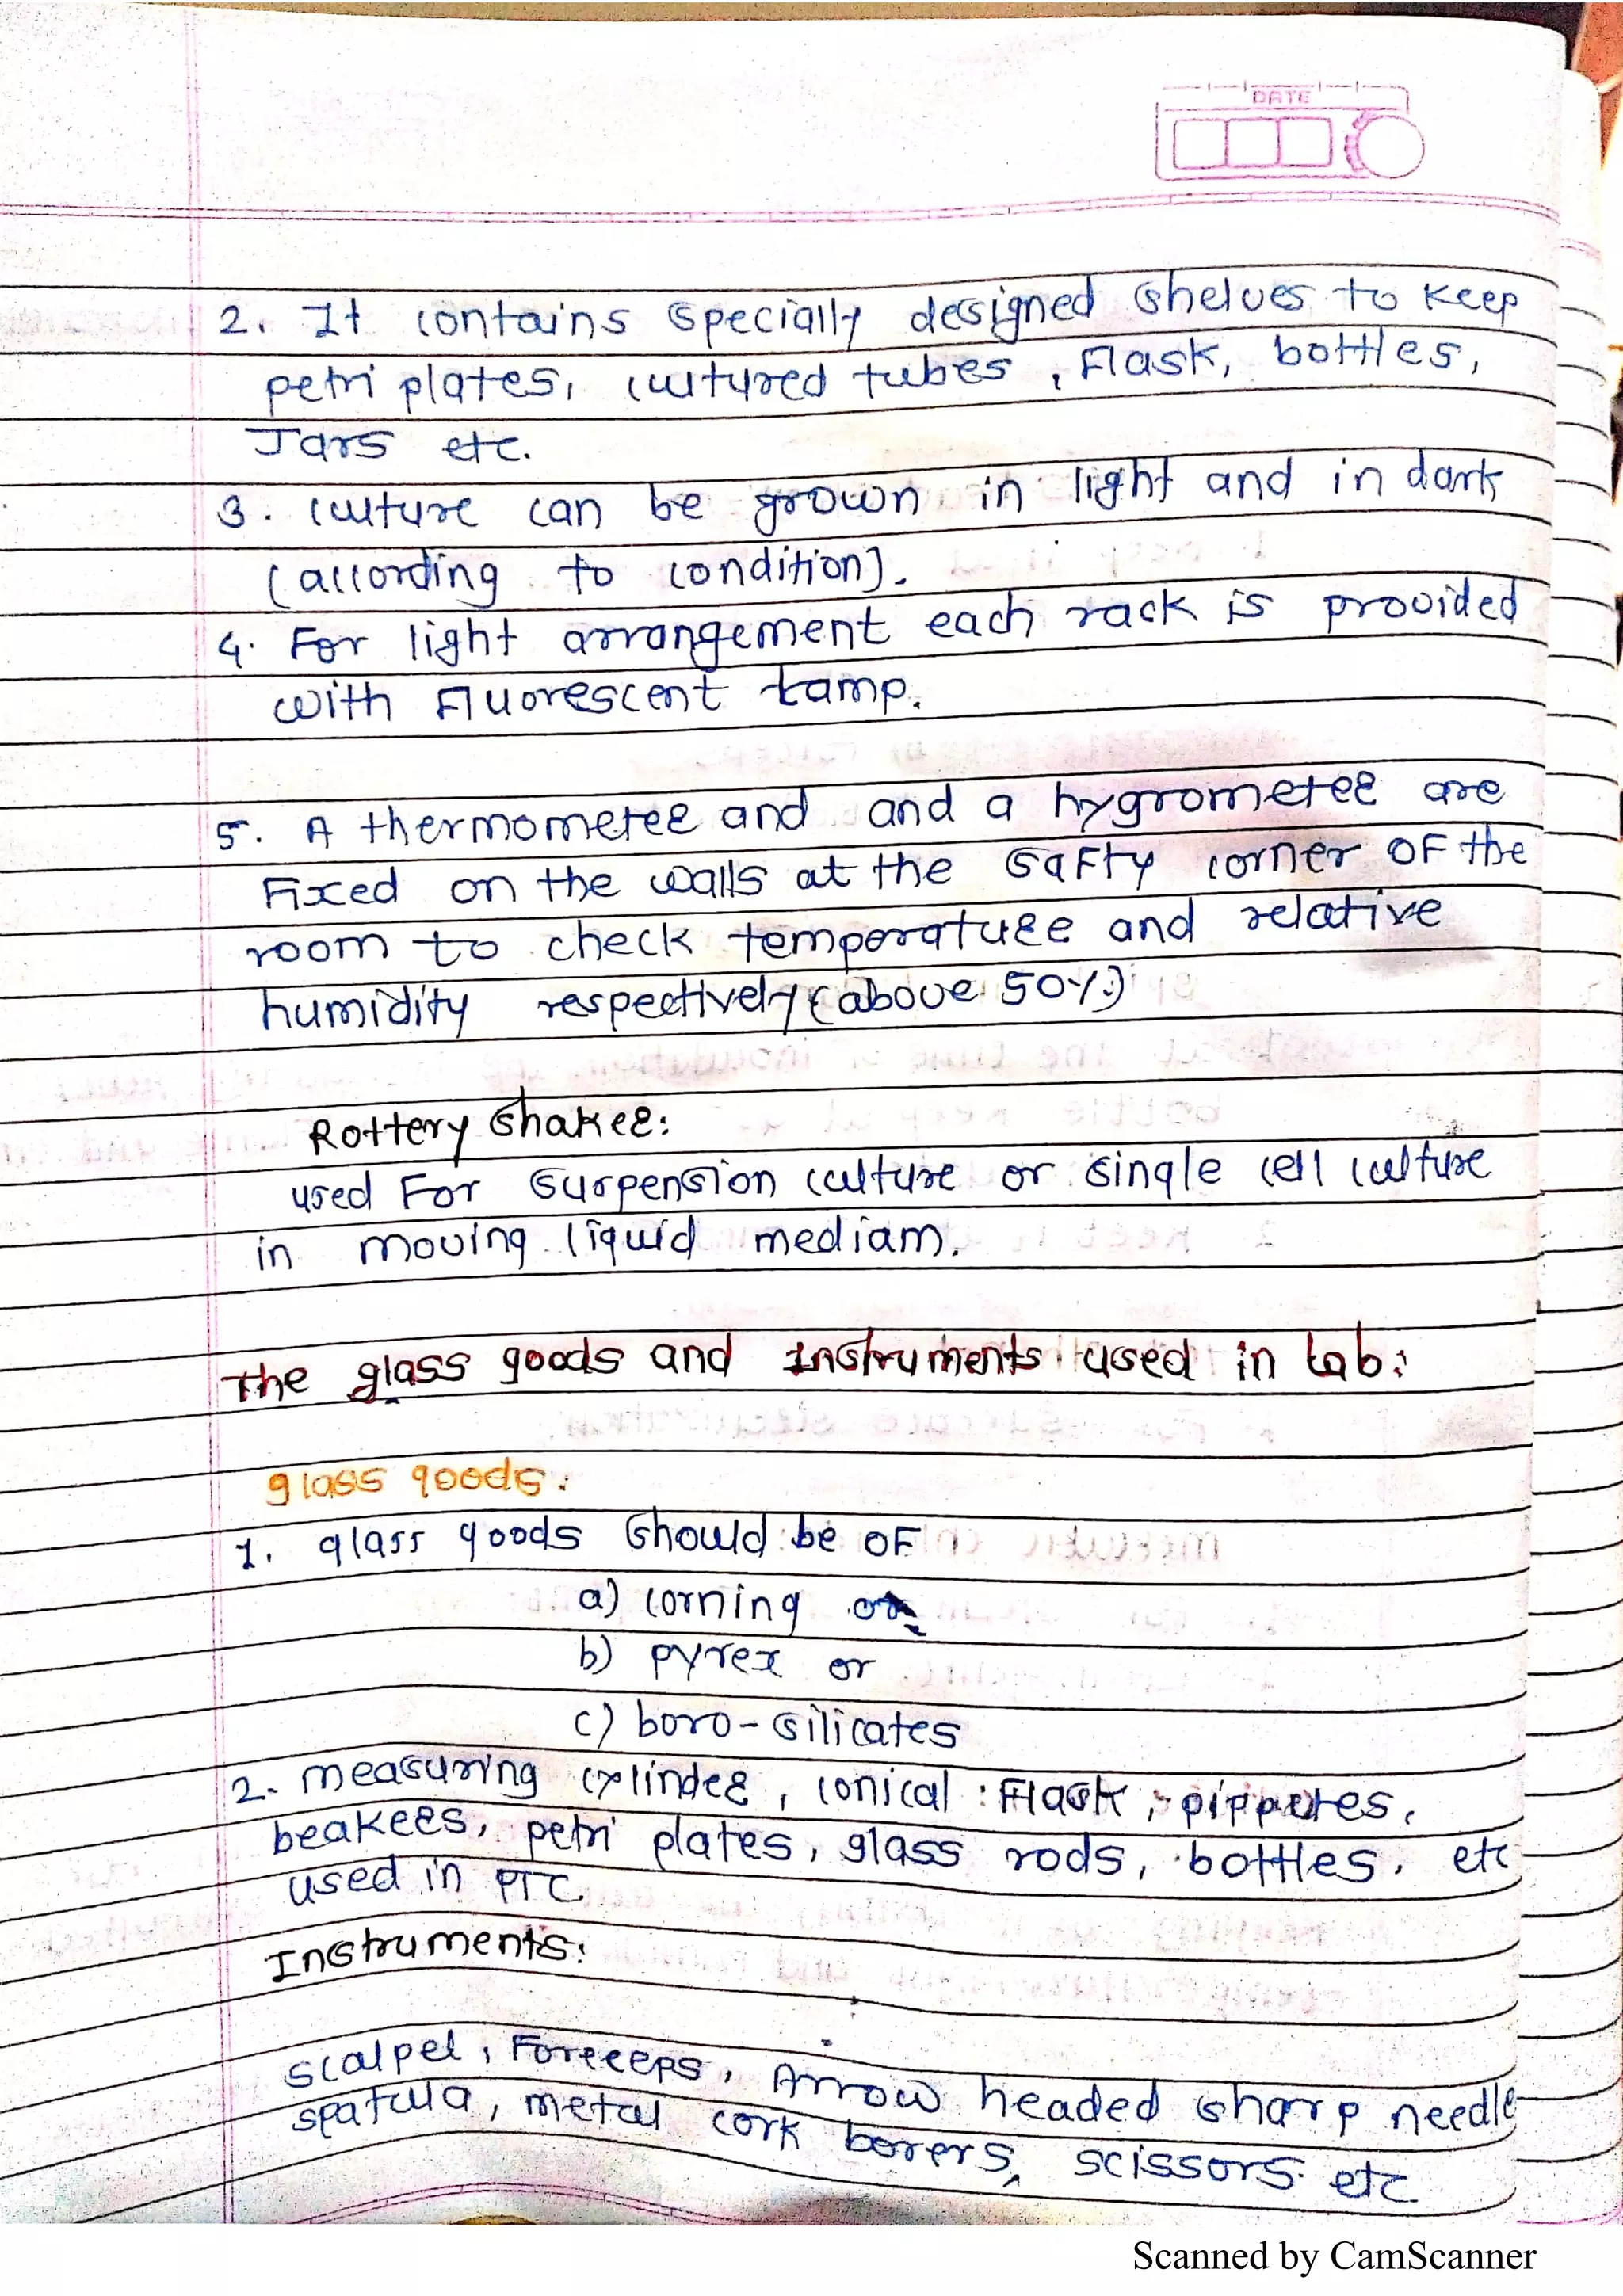 DATE
2. It contains specially designed shelves to keep
petri plates, cultured tubes, Flask, bottles,
Jars etc.
3. culture can be grown in light and in dark
(according to condition).
4. For light arrangement each rack is provided
with Fluorescent Lamp.
5. A thermometer and and a hygrometer are
Fixed on the walls at the safty corner OF the
room to check temperature and relative
humidity respectively (above 50%)
Rottery shaker:
used For suspension culture or single cell culture
in moving liquid mediam.
The glass goods and Instruments used in Lab:
glass goods:
1. glass goods should be OF
a) corning or
b) pyrex or
c) boro-silicates
2. measuring cylinder, conical Flask, pippetes,
beakers, petri plates, glass rods, bottles, etc
used in PTC
Instruments:
scalpel, Forceeps, Arrow headed sharp needle
spatula, metal cork borers, scissors etc
Scanned by CamScanner